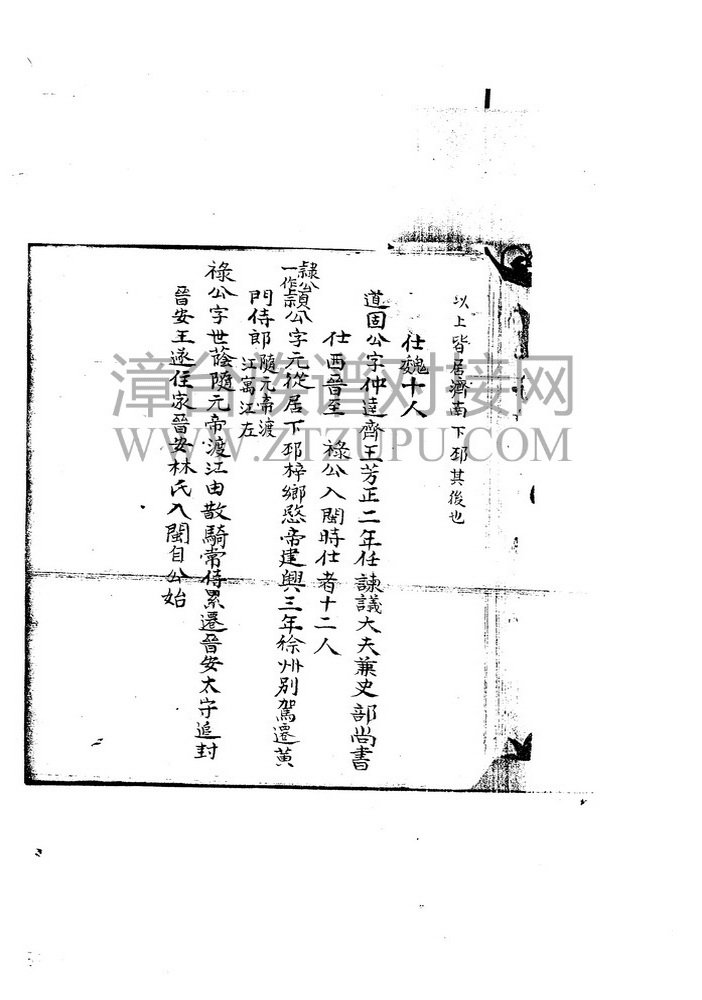 以上皆居濟南下邳其後也
仕魏十人
道固公字仲達齊王芳正二年任諫議大夫兼史部尚書
仕西晉至 祿公入閩時仕者十二人
公字元從居下邳梓鄉愍帝建興三年徐州別駕遷黃
門侍郎隨元帝渡
江寓江左
祿公字世蔭隨元帝渡江由散騎常侍累遷晉安太守追封
晉安王遂住家晉安林氏入閩自公始
漳台族谱对接网
WWW.ZTZUPU.COM